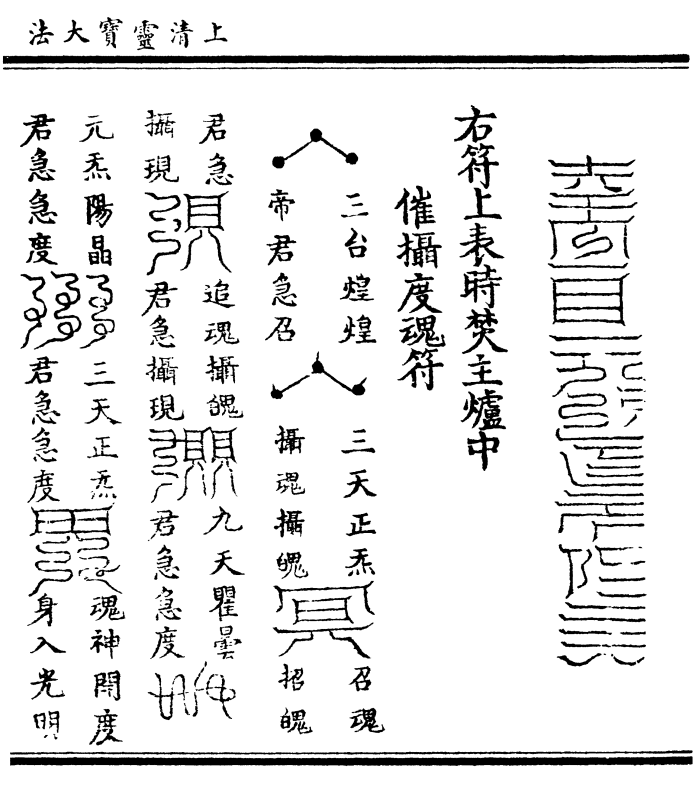 上清靈寶大法
右符上表時焚主爐中
催攝度魂符
三台煌煌
帝君急召
三天正炁
攝魂攝魄
召魂
招魄
君急
攝現
追魂攝魄
君急攝現
九天瞿曇
君急急度
元炁陽晶
君急急度
三天正炁
君急急度
魂神開度
身入光明